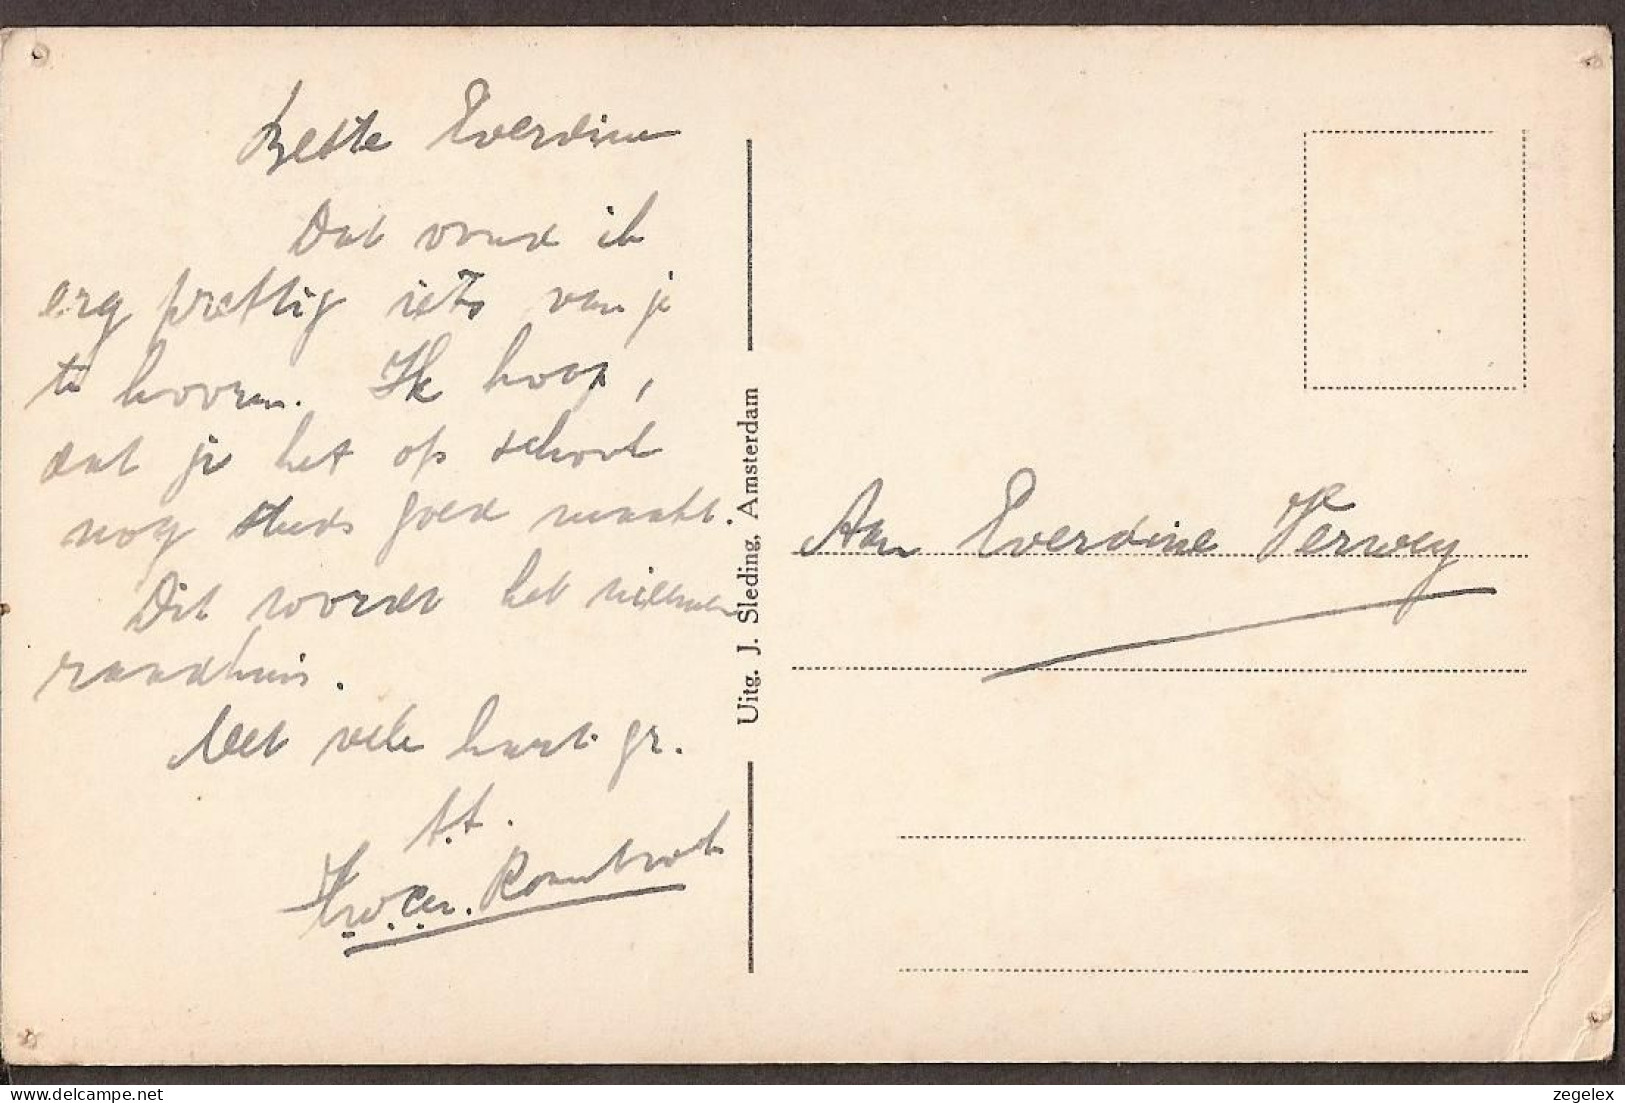 Beste Everdine
Dat vond ik
erg prettig iets van je
te hooren. Ik hoop,
dat je het op school
nog steeds goed maakt.
Dit wordt het nieuwe
raadhuis.
Met vele hart. gr.
t.t.
Uitg. J. Sleding, Amsterdam
Aan Everdine Verwey
zegelex